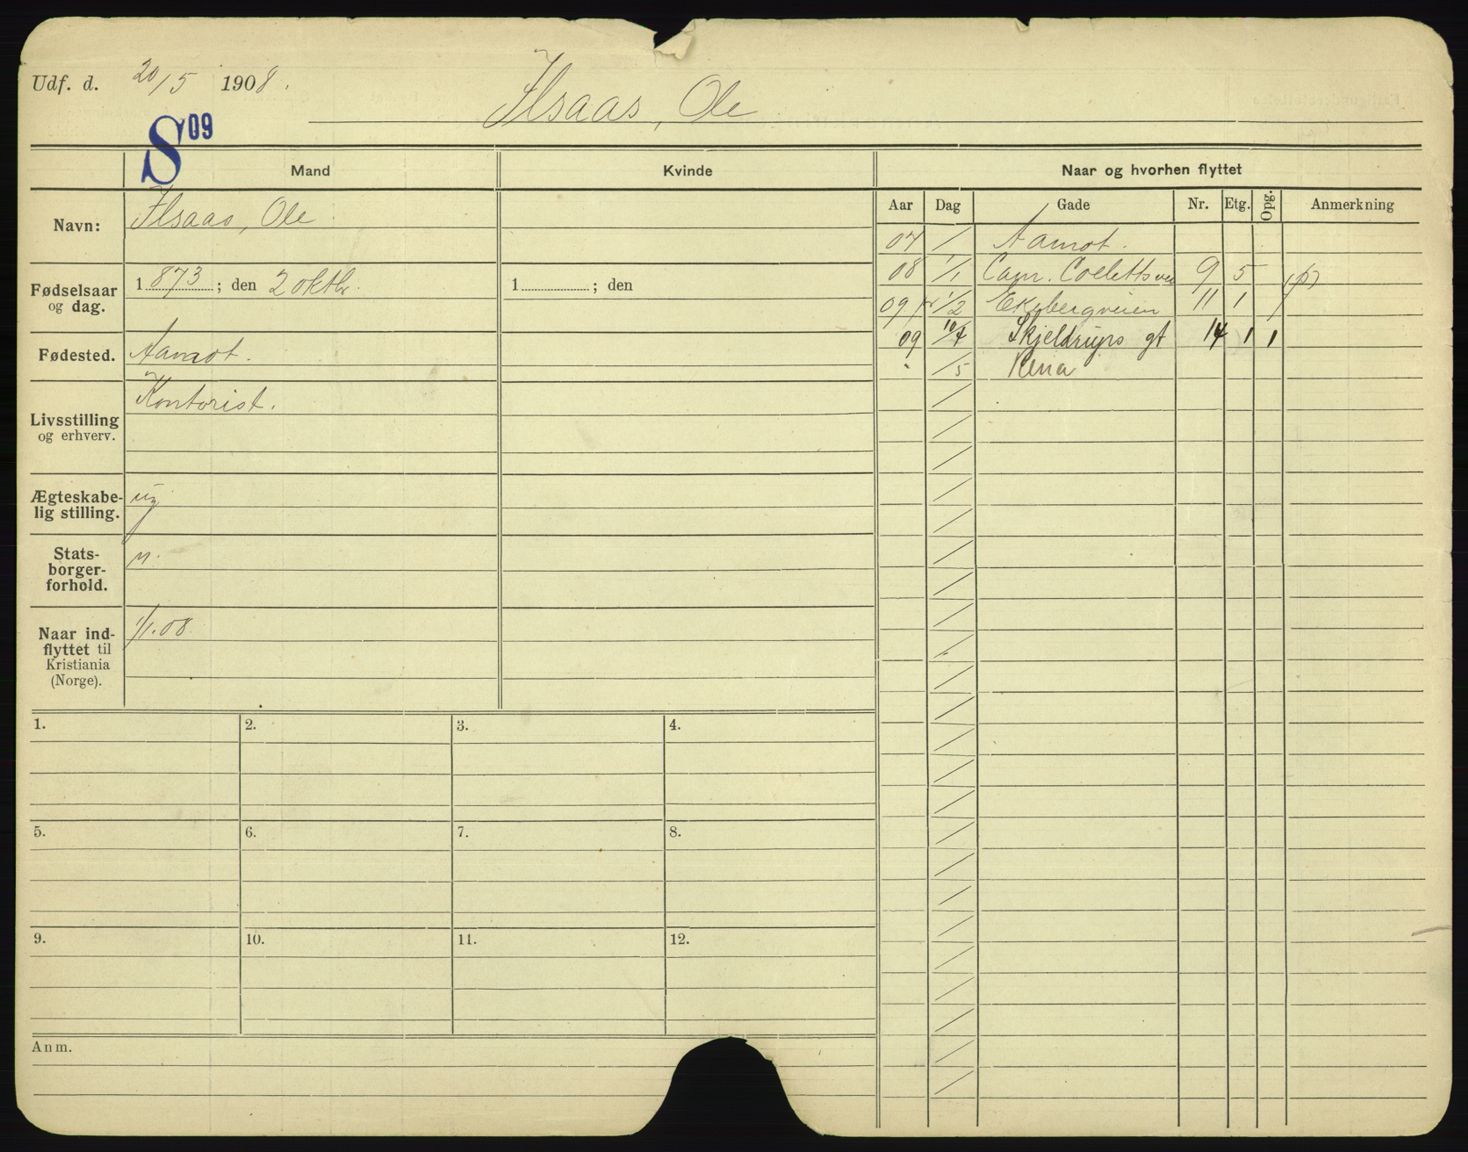 Udf. d. 20/5 1908.
Ilsaas, Ole
S 09
Mand Kvinde Naar og hvorhen flyttet
Aar Dag Gade Nr. Etg. Opg. Anmerkning
Navn: Ilsaas, Ole
07 / Aamot.
08 1/1 Cam. Colletts vei 9 5
Fødselsaar og dag. 1 873 ; den 2 oktbr. 1 ; den
09 1/2 Ekebergveien 11 1
09 10/4 Skjeldrups gt 14 1 1
Fødested. Aamot.
/5 Rena
Livsstilling og erhverv. Kontorist.
Ægteskabe-
lig stilling. ug
Stats-
borger-
forhold. n.
Naar ind-
flyttet til
Kristiania
(Norge). 1/1.08
1. 2. 3. 4.
5. 6. 7. 8.
9. 10. 11. 12.
Anm.